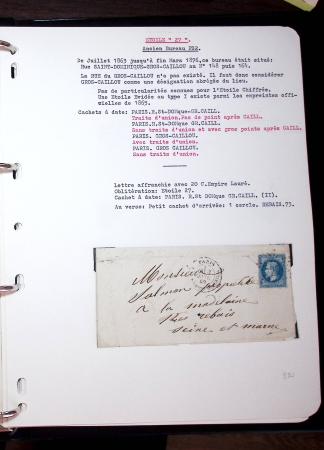 ETOILE " 27 ".
Ancien Bureau PX2.
De Juillet 1863 jusqu'à fin Mars 1876, ce bureau était situé:
Rue SAINT-DOMINIQUE-GROS-CAILLOU au N° 148 puis 164.
La RUE du GROS-CAILLOU n'a pas existé. Il faut donc considérer
GROS-CAILLOU comme une désignation abrégée du lieu.
Pas de particularités connues pour l'Etoile Chiffrée.
Une Etoile Evidée ou type I existe parmi les empreintes offi-
cielles de 1863.
Cachets à date: PARIS.R.St-DOMque-GR.CAILL.
Traits d'union.Pas de point après CAILL.
PARIS.R.St-DOMque GR.CAILL.
Sans traits d'union et avec gros points après CAILL.
PARIS. GROS-CAILLOU.
Avec trait d'union.
PARIS. GROS CAILLOU.
Sans traits d'union.
Lettre affranchie avec 20 C.Empire Lauré.
Oblitération: Etoile 27.
Cachet à date: PARIS. R.St DOMque GR.CAILL. (II).
Au verso: Petit cachet d'arrivée: 1 cercle. REBAIS.73.
PARIS
Monsieur
Salmon propriétre
à la madelaine
près rebais
Seine et marne